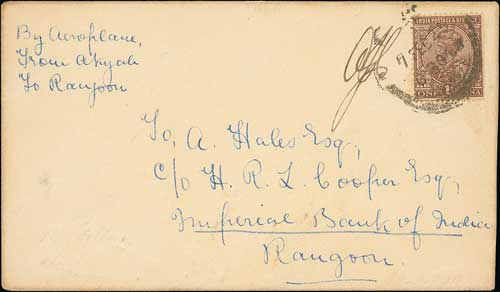 By Aeroplane,
From Akyab
To Rangoon
INDIA POSTAGE & REVENUE
ONE
To, A. Hales Esq,
C/o H. R. L. Cooper Esq,
Imperial Bank of India
Rangoon.